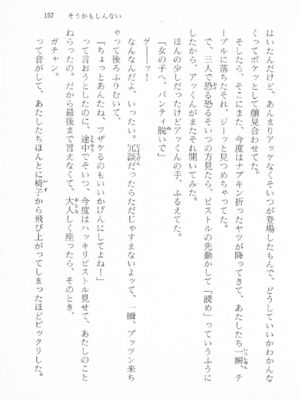 157 そうかもしんない
はいたんだけど、あんまりアッケなくそいつが登場したもんで、どうしていいかわかんな
くってポケッとして顔見合わせてた。
そしたら、そこにまた、今度はナプキン折ったヤツが降ってきて、あたしたち一瞬、テ
ーブルに落ちたそれ、ジーッと見つめちゃってた。
で、三人で恐る恐るそいつの方見たら、ピストルの先動かして「読め」っていうふうに
したから、アッくんがまたそれ開いてみた。
ほんの少しだったけどアッくんの手、ふるえてた。
「女の子へ、パンティ脱いで」
ゲーーッ！
なんなんだよ、いったい。冗談だったらただじゃすまないって、一瞬、プッツン来ち
ゃって後ろふりむいて、
「ちょっとあんたね、フザケるのもいいかげんにしてよね！」
って言おうとしたのに、途中でそいつ、今度はハッキリピストル見せて、あたしのこと
ねらったの。だから最後まで言えなくて、大人しく座ったら、そのとき、
ガチャン。
って音がして、あたしたちほんとに椅子から飛び上がってしまったほどビックリした。